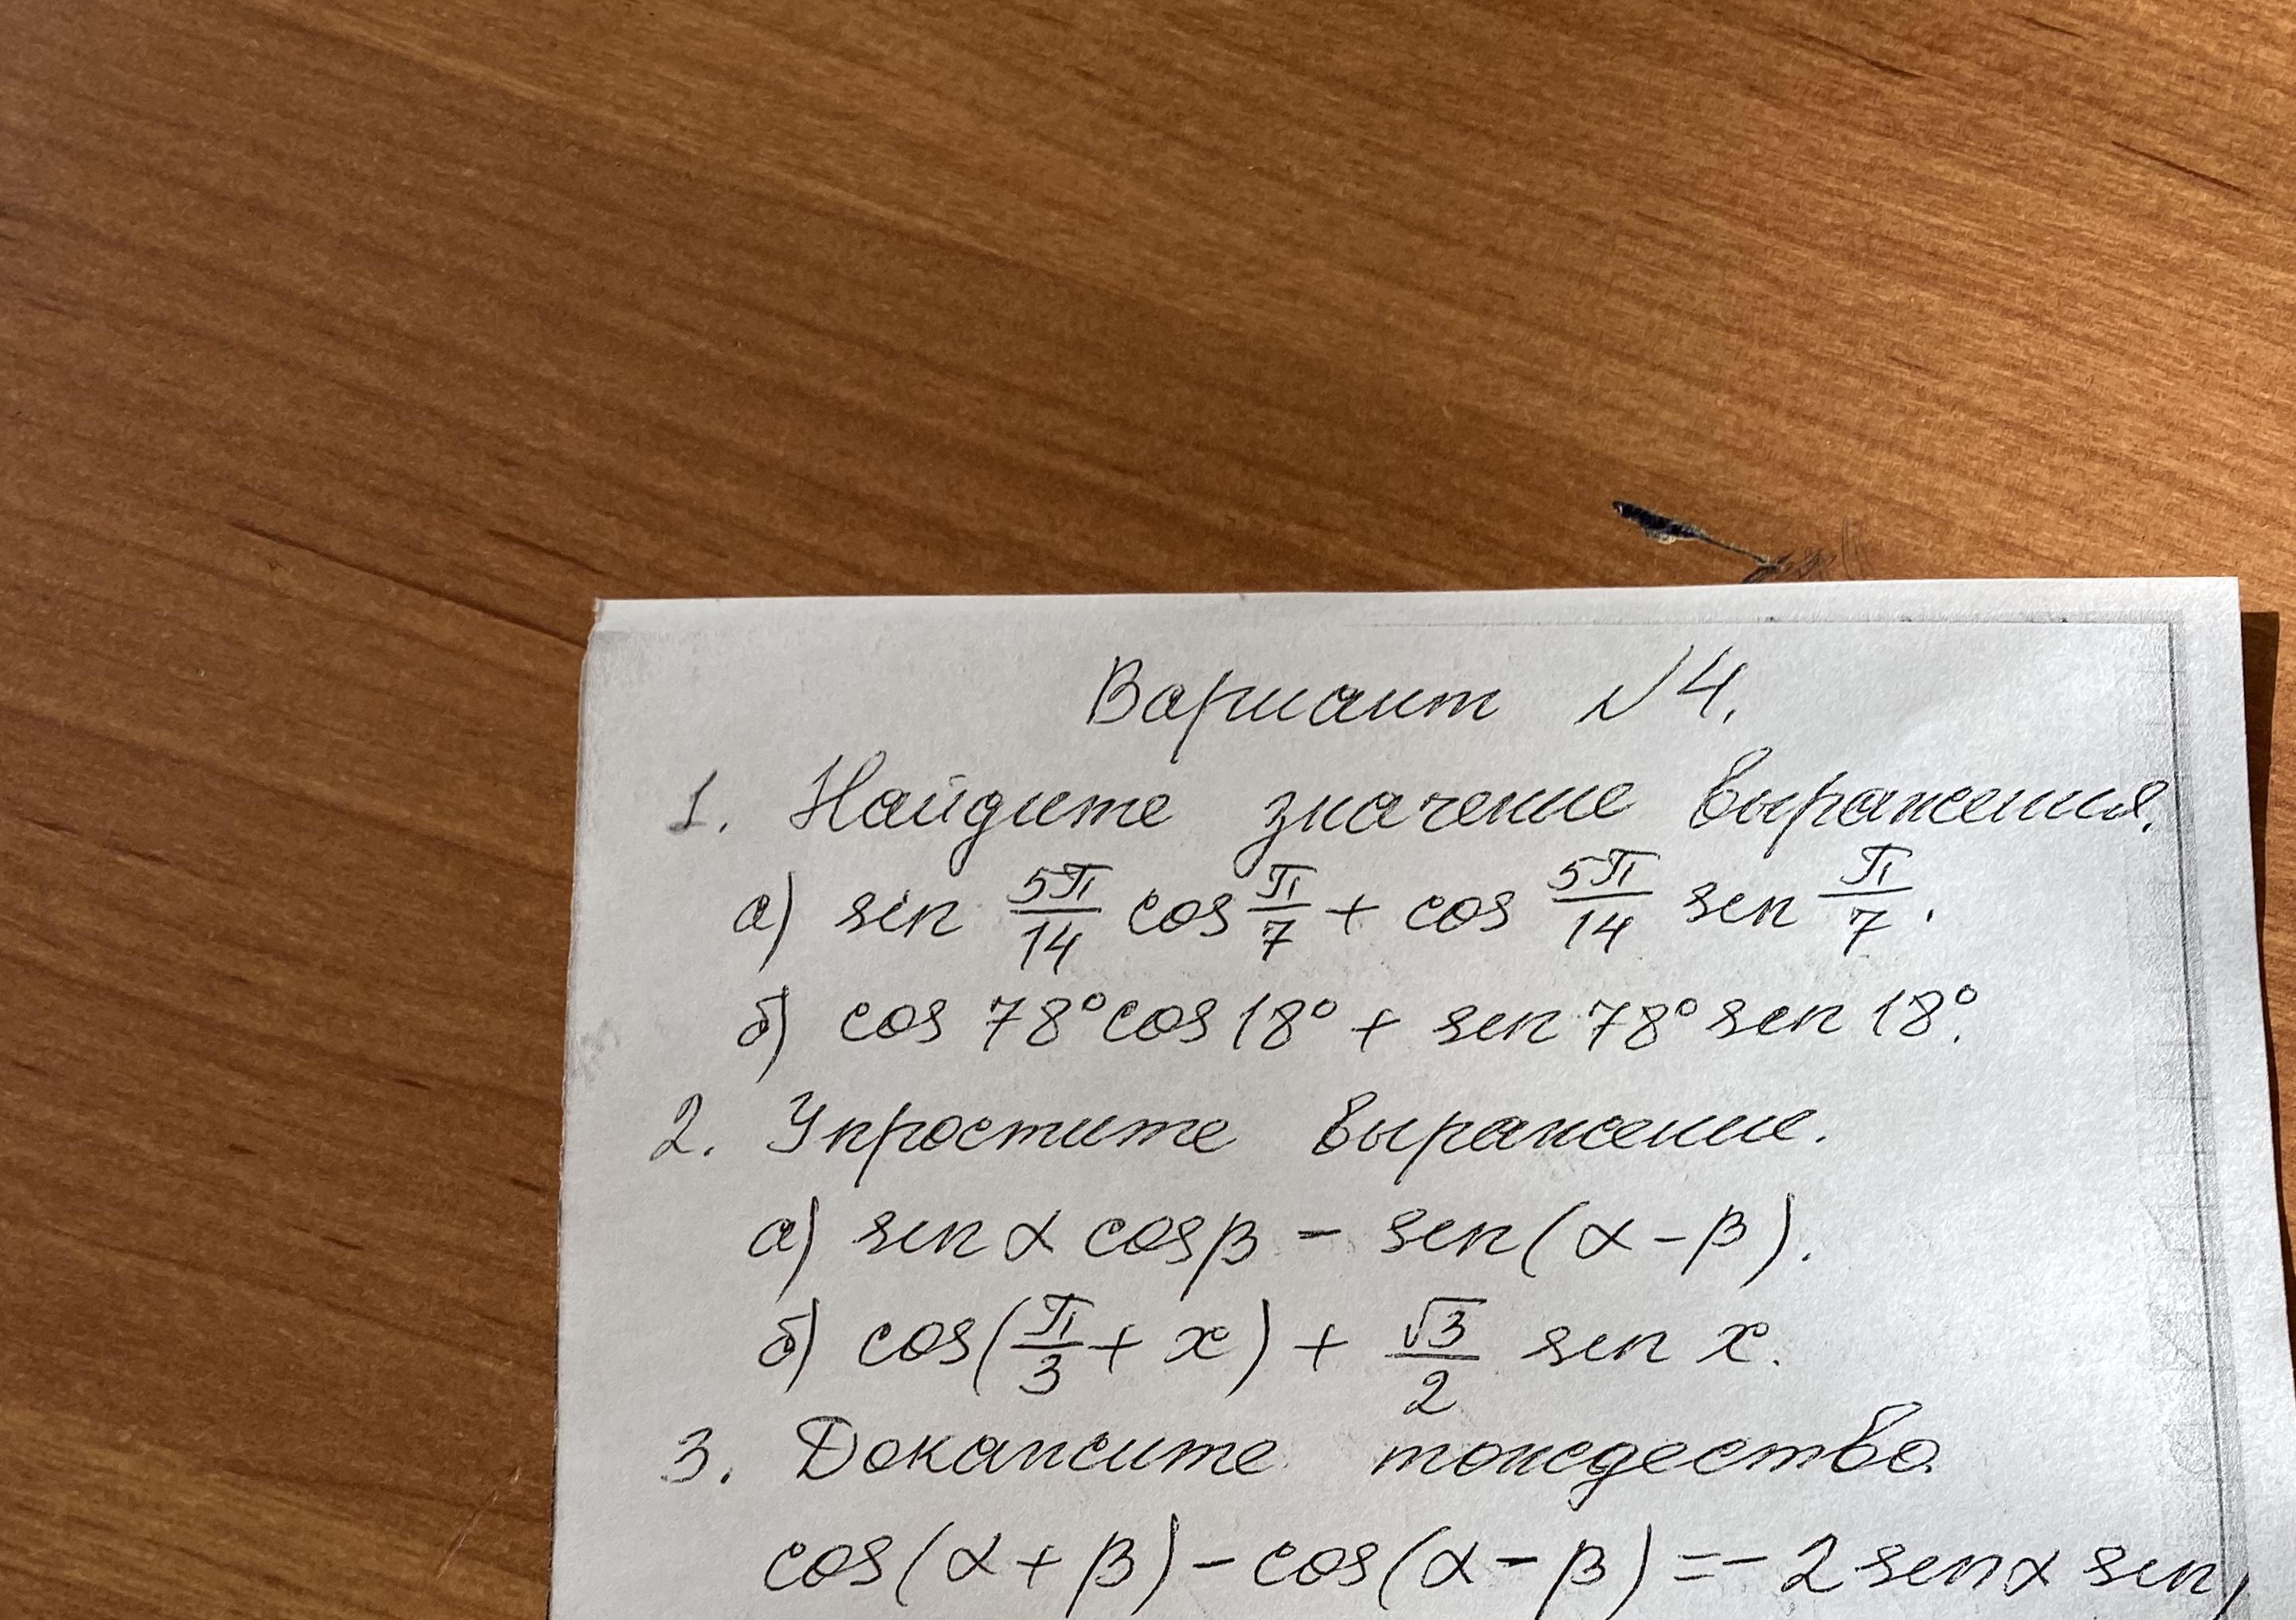 Вариант №4.
1. Найдите значение выражения.
а) sin 5π/14 cos π/7 + cos 5π/14 sin π/7.
б) cos 78° cos 18° + sin 78° sin 18°.
2. Упростите выражение.
а) sin α cos β − sin(α − β).
б) cos(π/3 + x) + √3/2 sin x.
3. Докажите тождество
cos(α + β) − cos(α − β) = −2 sin α sin